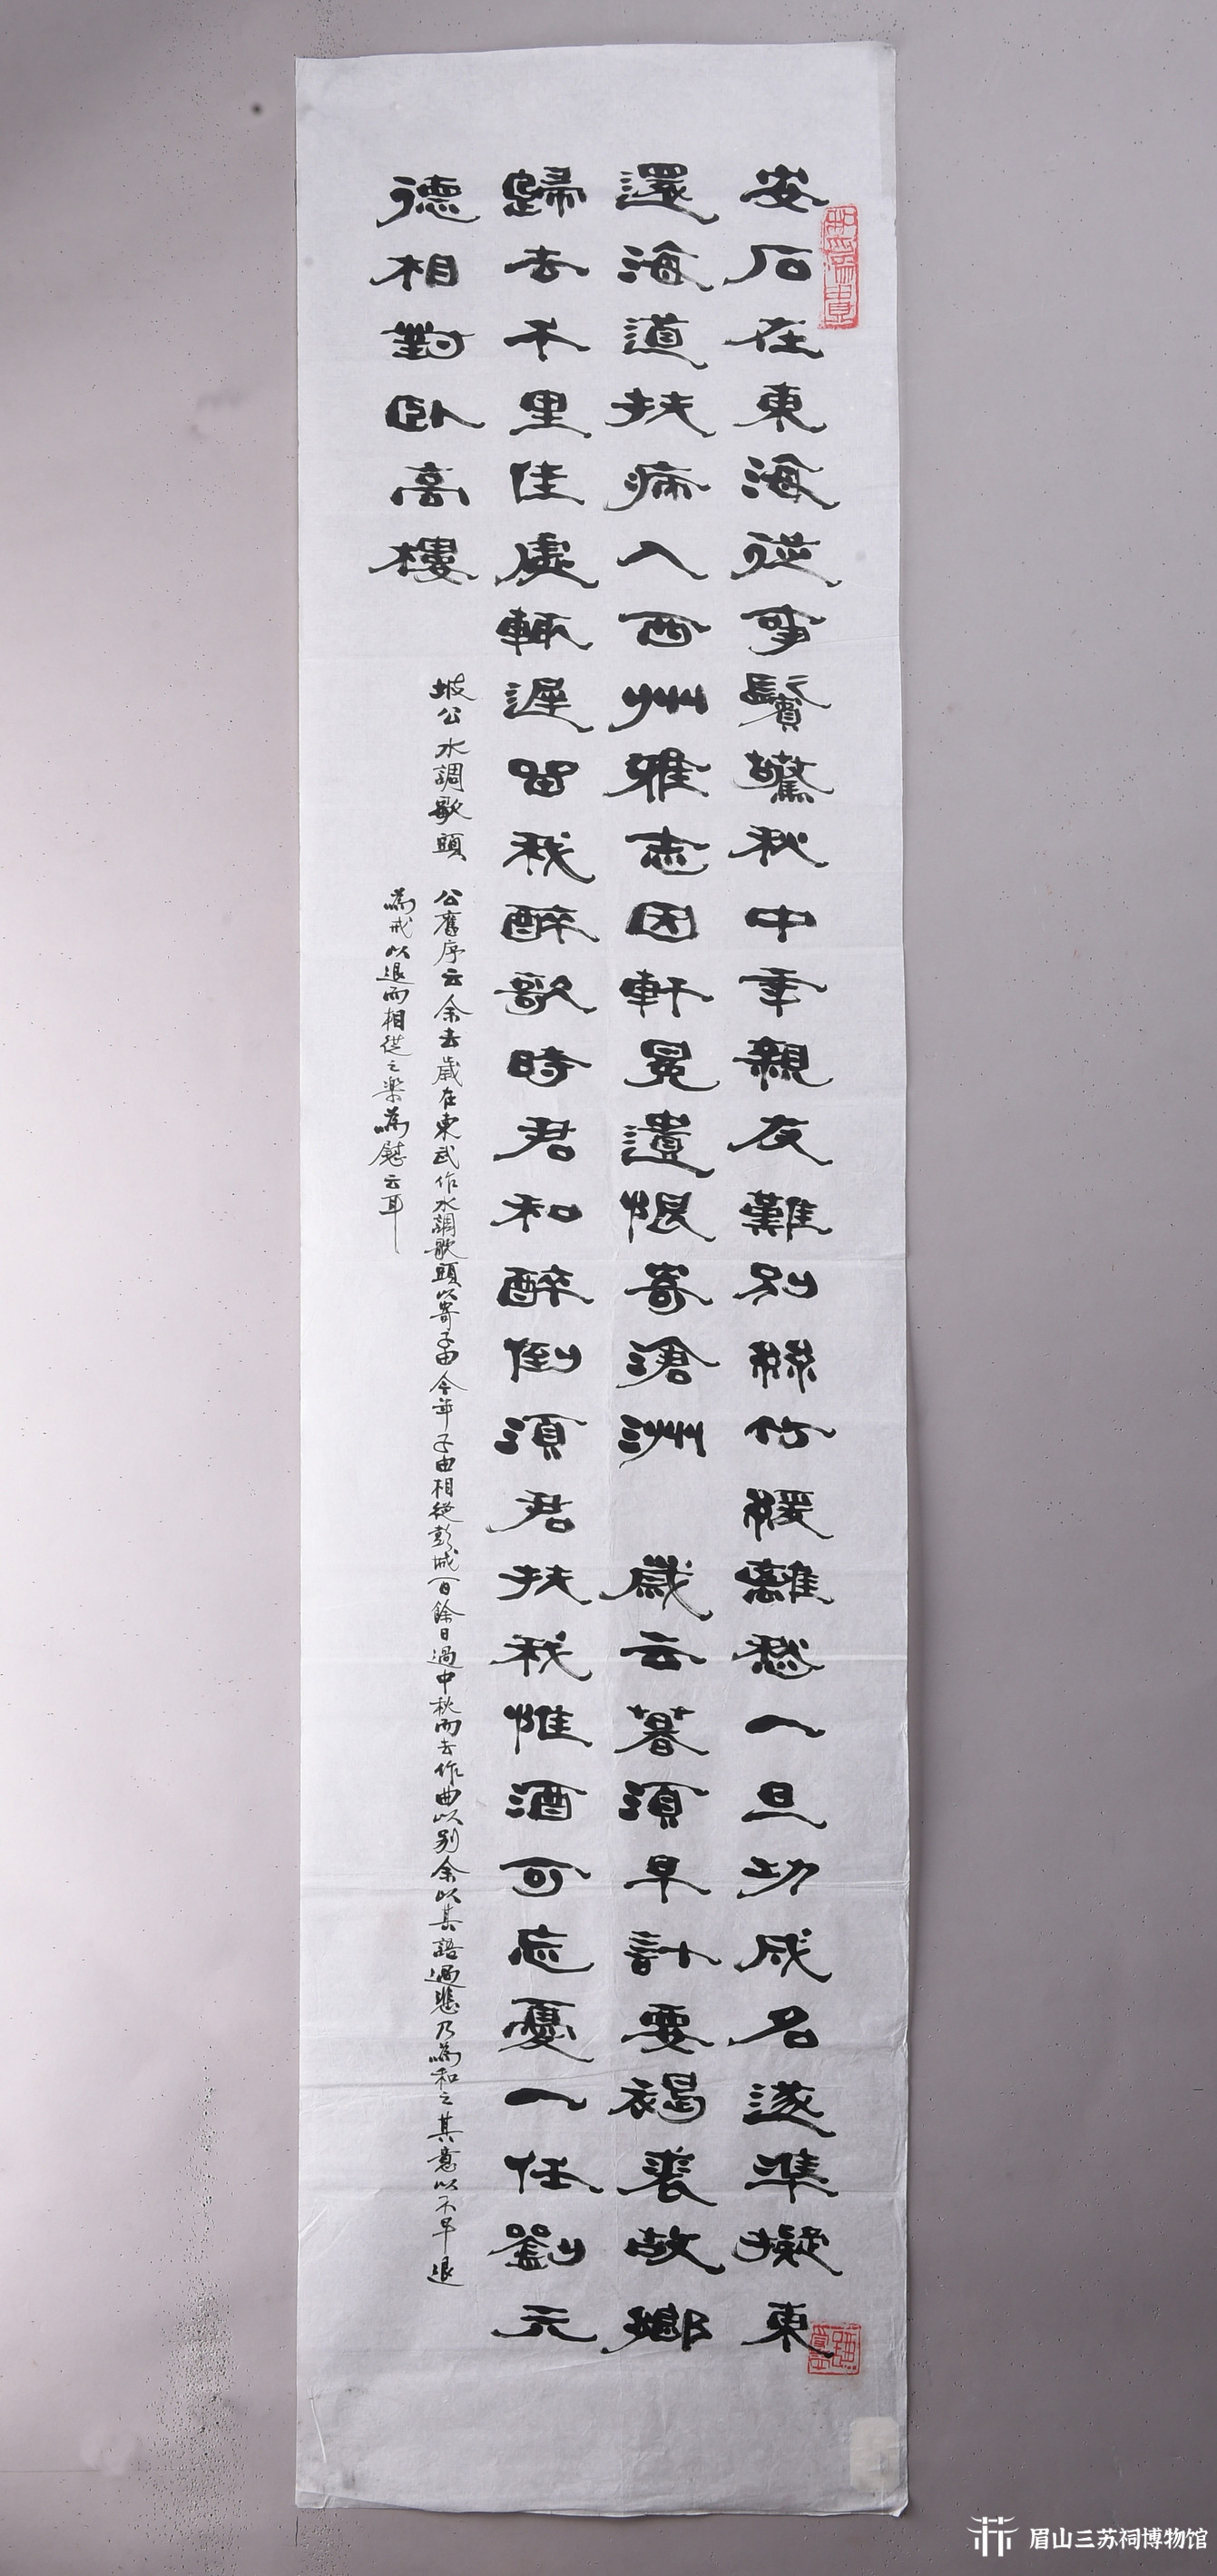 安石在東海從事鬢驚秋中年親友難別絲竹緩離愁一旦功成名遂準擬東
還海道扶病入西州雅志困軒冕遺恨寄滄洲 歲云暮須早計要褐裘故鄉
歸去千里佳處輒遲留我醉歌時君和醉倒須君扶我惟酒可忘憂一任劉元
德相對卧高樓
坡公水調歌頭
公舊序云余去歲在東武作水調歌頭以寄子由今年子由相從彭城百餘日過中秋而去作曲以別余以其語過悲乃為和之其意以不早退
為戒以退而相從之樂為慰云耳
眉山三苏祠博物馆